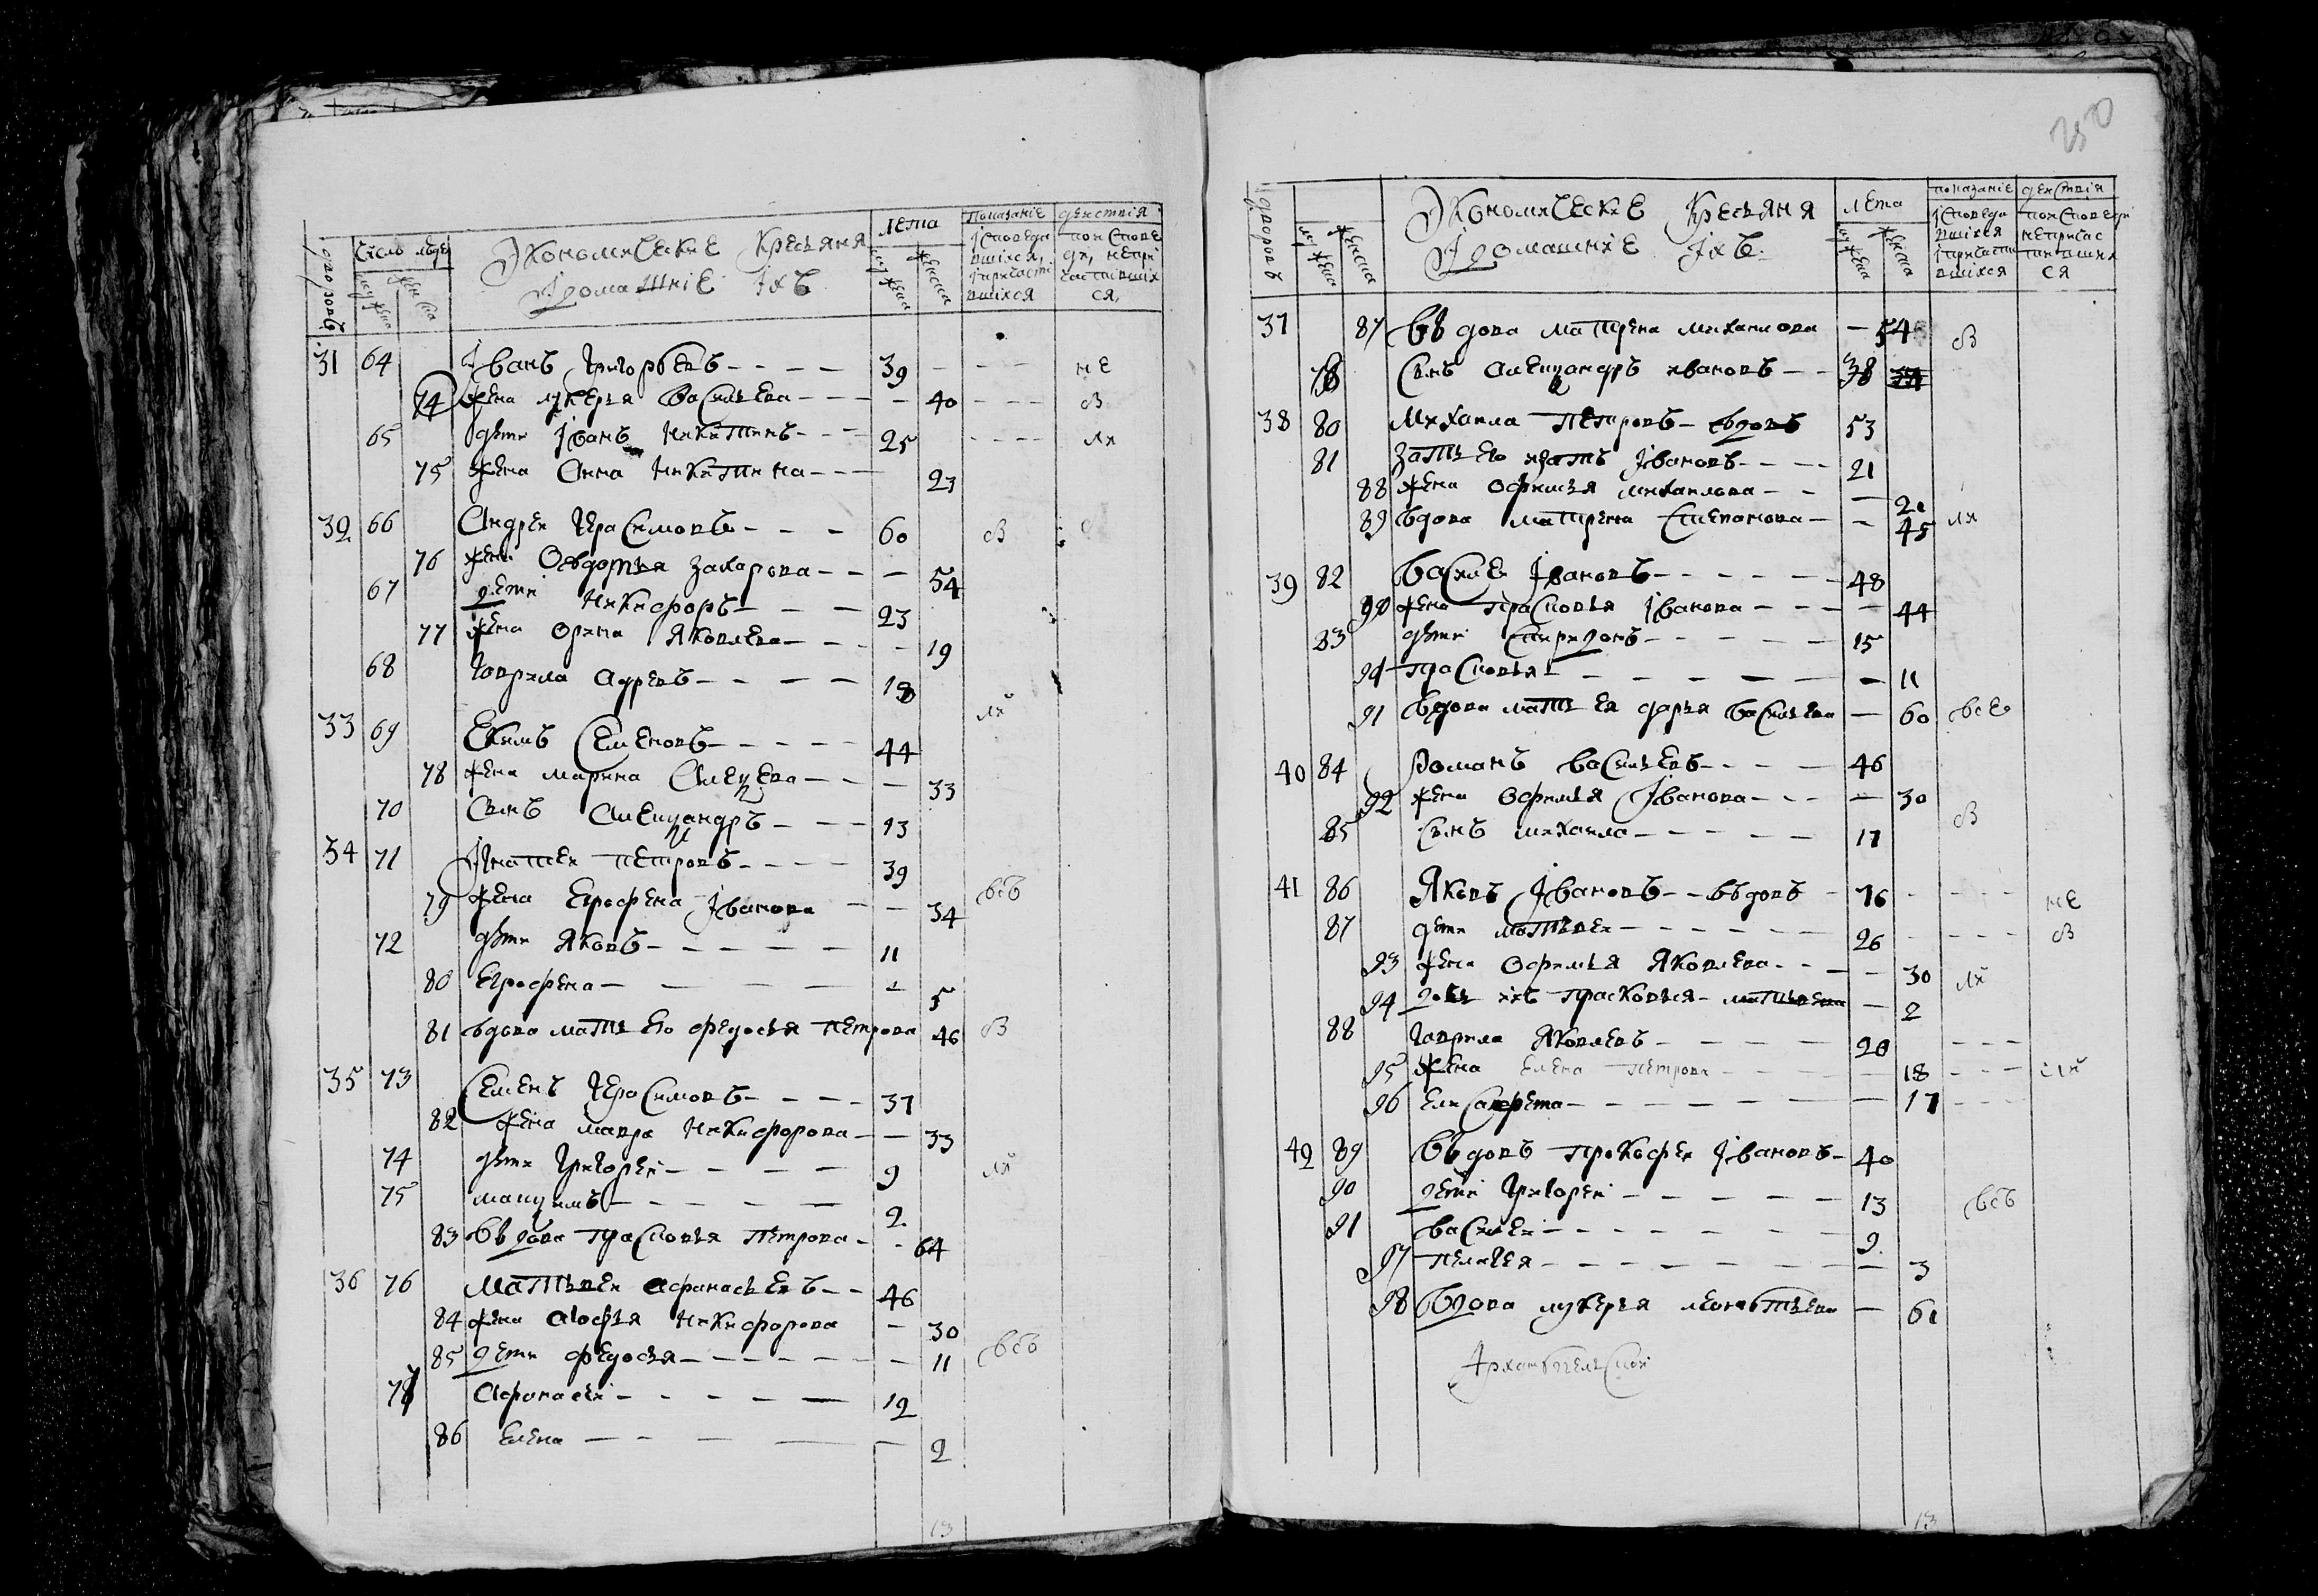 дворовъ
Число люде
мужеска
женска
Экономические Крестьяня
I домашние Iхъ
лета
мужеска
женска
показание действия
Iсповеда вшихся, Iпричасти вшихся
по исповеди, непричастившихся,
31 64 Iванъ Григорьевъ 39 не
74 жена лукерья васильева 40 в
65 дети Iванъ никитинъ 25 ли
75 жена анна никитина 23
32 66 Андреи герасимовъ 60 в
76 жена Овдотья захарова 54
67 дети никифоръ 23
77 жена орина Яковлева 19
68 гаврила адревъ 18
33 69 Екимъ Семеновъ 44 ли
78 жена марина Алексеева 33
70 Сынъ Александръ 13
34 71 Iгнатеи петровъ 39
79 жена Ефросена Iванова 34 всъ
72 дети Яковъ 11
80 Ефросена 5
81 вдова мать его федосья петрова 46 в
35 73 Семенъ герасимовъ 37
82 жена мавра никифорова 33
74 дети григореи 9 ли
75 максимъ 2
83 въдова прасковья петрова 64
36 76 Матьвеи афанасьевъ 46
84 жена агофья никифорова 30
85 дети федосья 11 всъ
78 афонасеи 12
86 елена 2
13
250
дворовъ
мужеска
женска
Экономические Крестьяня
I домашние Iхъ
лета
мужеска
женска
показание действия
Iсповеда вшихся Iпричасти вшихся
по исповеди непричас тивших ся
37 87 въдова матрена михаилова 54 в
78 Сынъ александръ ивановъ 38
38 80 Михаила петровъ вдовъ 53
81 зять его игнатъ Iвановъ 21
88 жена офимья михаилова 20
89 вдова матрена степанова 45 ли
39 82 василеи Iвановъ 48
90 жена прасковья Iванова 44
83 дети спиридонъ 15
91 прасковья 11
91 вдова мать ея дарья васильева 60 все
40 84 романъ васильевъ 46
92 жена офимья Iванова 30
85 сынъ михаила 17 в
41 86 Яковъ Iвановъ въдовъ 76 не
87 дети матьвеи 26 в
93 жена офимья Яковлева 30 ли
94 дочь ихъ прасковья матьвеева 2
88 гаврила Яковлевъ 20
95 жена елена петрова 18 ли
96 елисафета 17
42 89 въдовъ прокофеи Iвановъ 40
90 дети григореи 13
91 василеи 9 всъ
97 пелагея 3
98 вдова лукерья леонтьева 61
Архангельскои
13